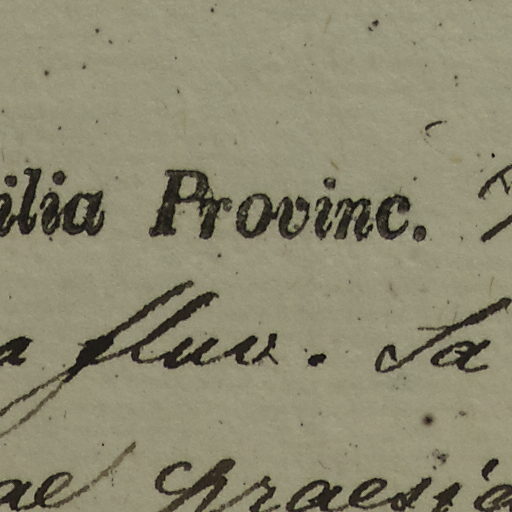 ilia Provinc.
a fluv. Sa
ae praesi